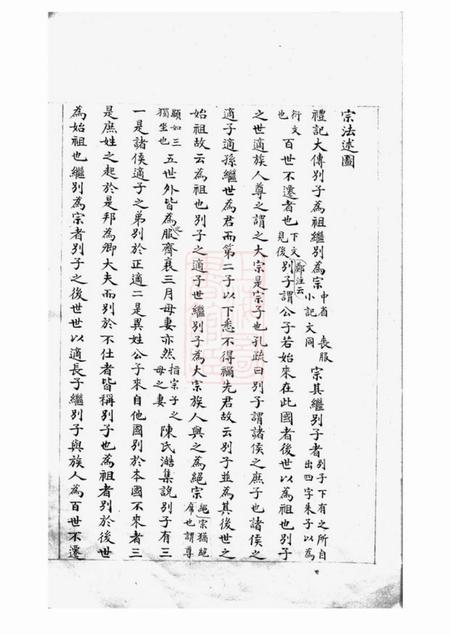 宗法述圖
禮記大傳別子為祖繼別為宗中省喪服小記文同宗其繼別子者別子下有之所自出四字朱子以為
衍文也百世不遷者也下文見後鄭注云別子謂公子若始來在此國者後世以為祖也別子
之世適族人尊之謂之大宗是宗子也孔疏曰別子謂諸侯之庶子也諸侯之
適子適孫繼世為君而第二子以下悉不得禰先君故云別子並為其後世之
始祖故云為祖也別子之適子世繼別子為大宗族人與之為絕宗絕宗猶絕席也謂尊
顯如三獨坐也五世外皆為之服齊衰三月母妻亦然指宗子之母之妻陳氏澔集說別子有三
一是諸侯適子之弟別於正適二是異姓公子來自他國別於本國不來者三
是庶姓之起於是邦為卿大夫而別於不仕者皆稱別子也為祖者別於後世
為始祖也繼別為宗者別子之後世世以適長子繼別子與族人為百世不遷